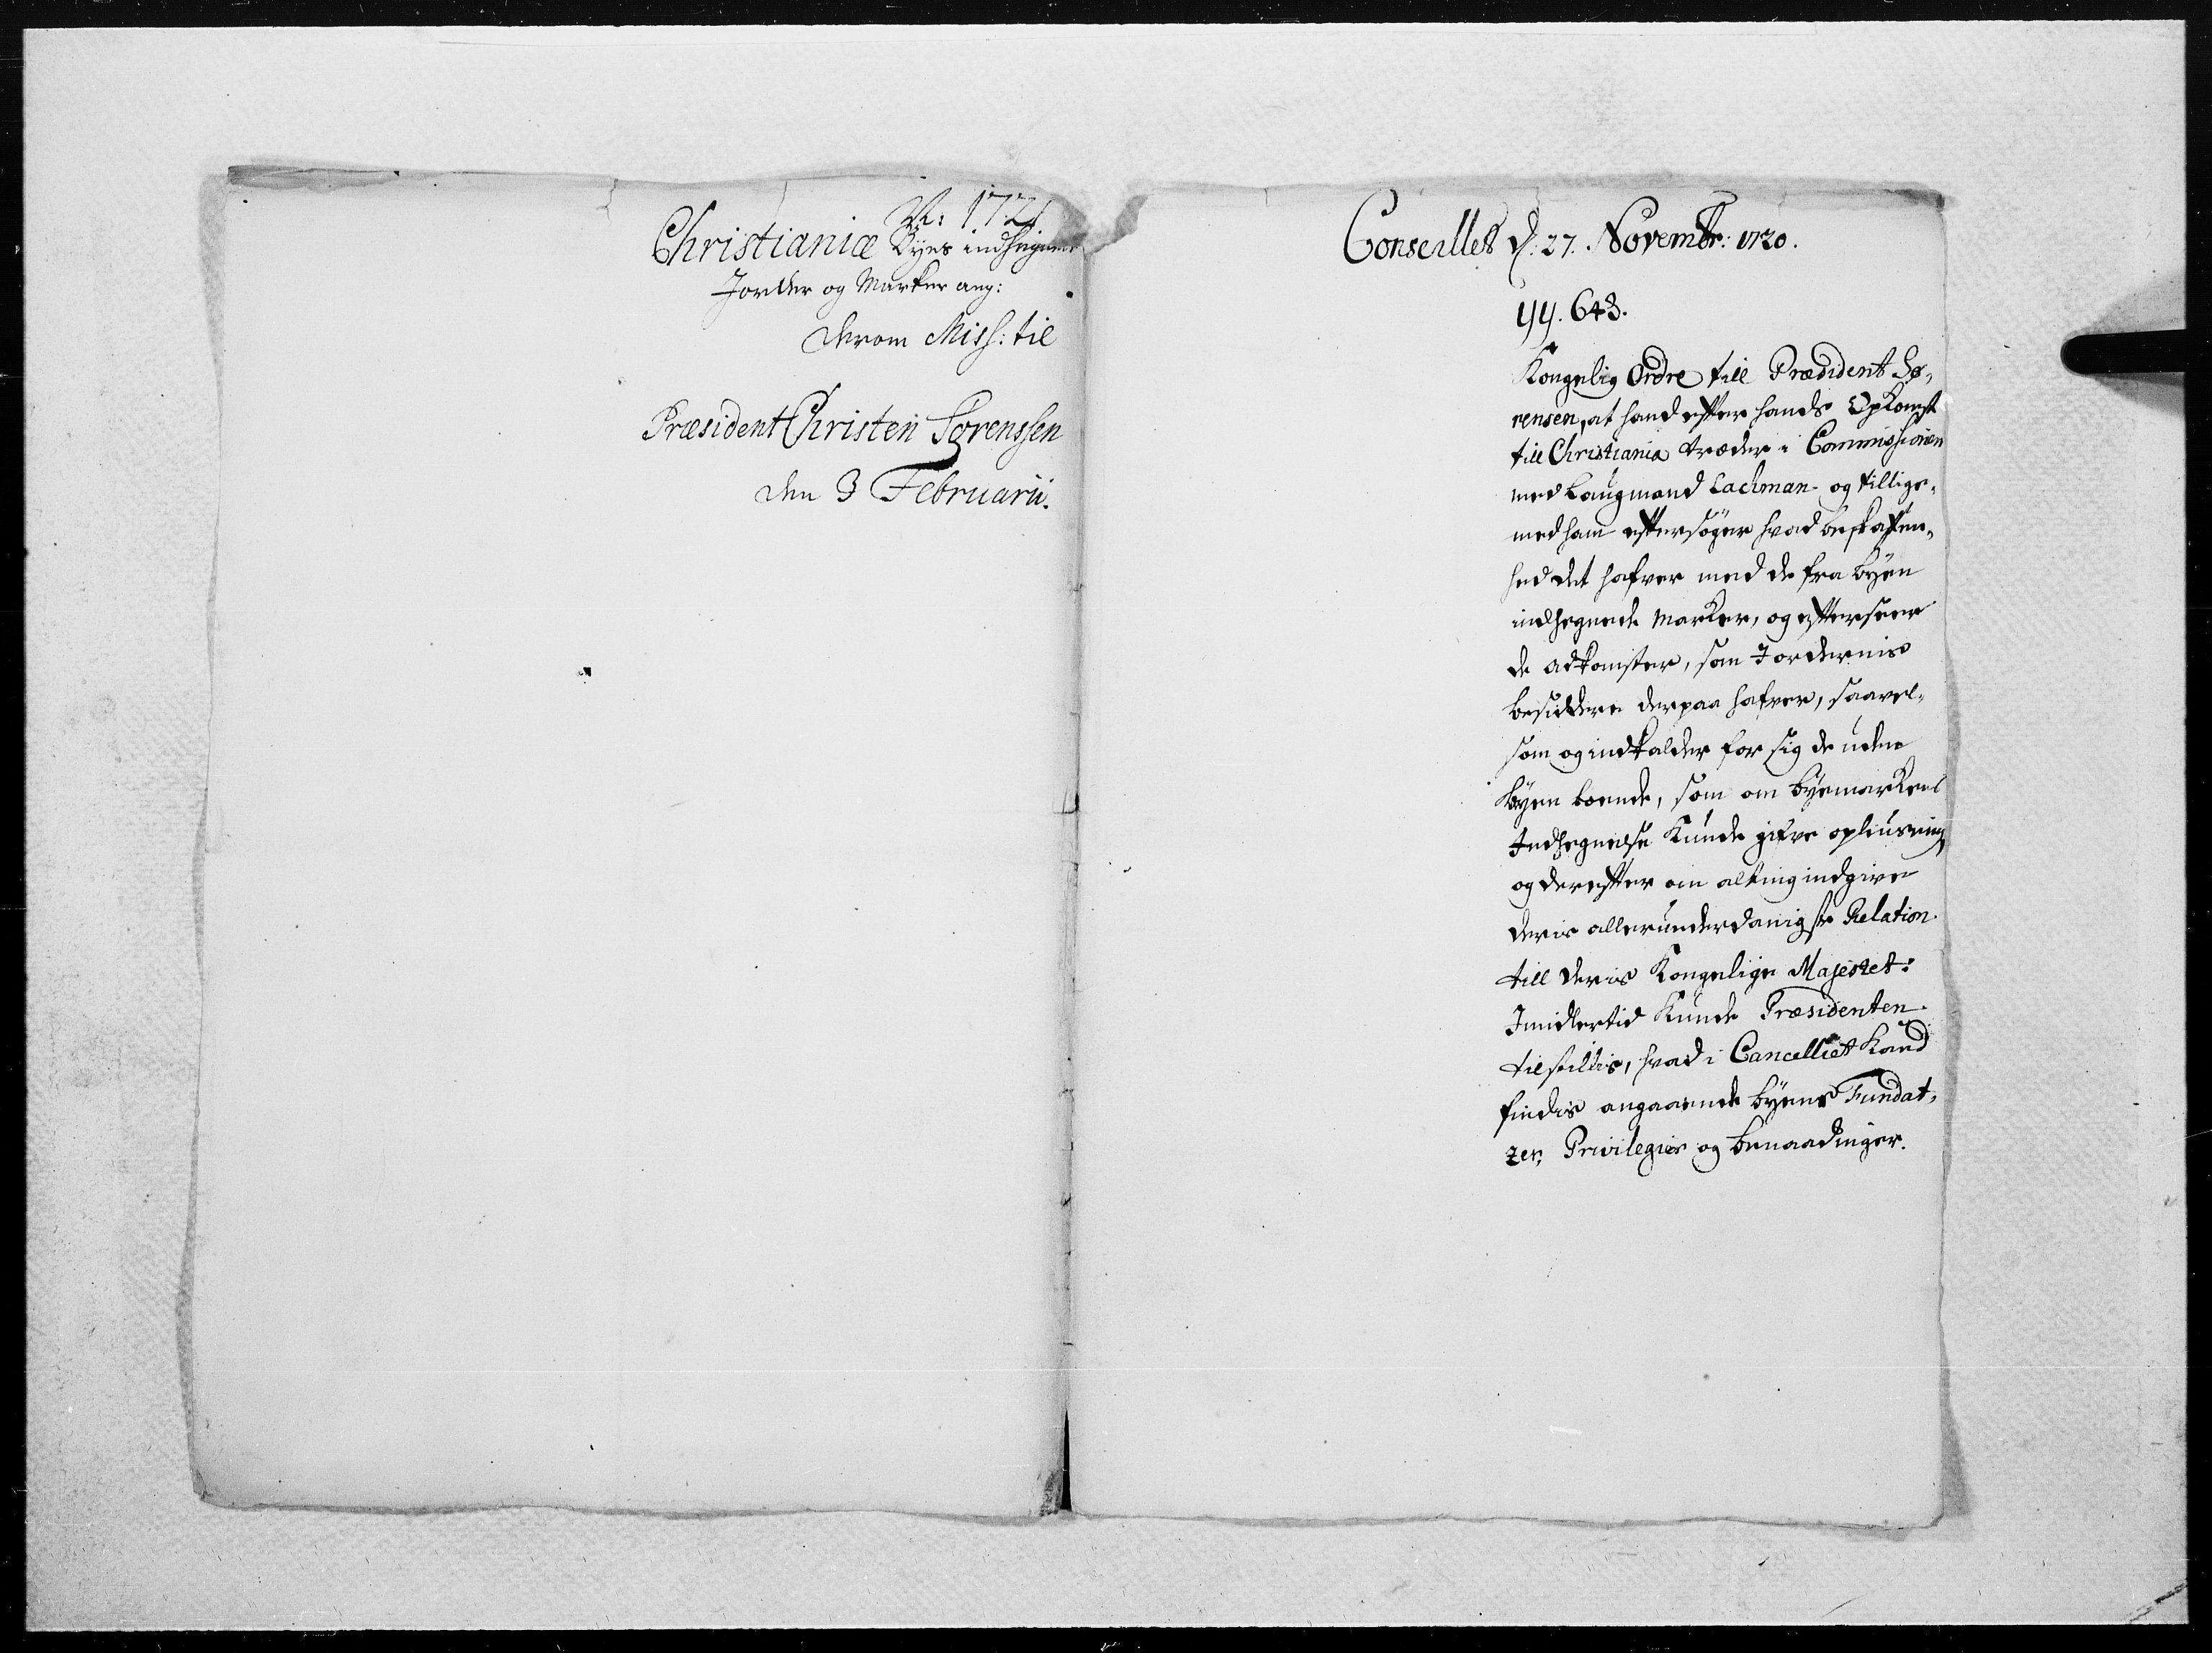 1721
Christianiæ Byes indhegnede
Jorder og Marker ang:
Derom Miss: til
Præsident Christen Sørenssen
den 3 Februarii.
Conseillet d: 27. Novembr: 1720.
YY. 643.
Kongelig Ordre till Præsident Sø,
rensen, at hand efter hands Opkomst
till Christiania træder i Commissionen
med Laugmand Lachman og tillige,
med ham eftersøger hvad beskaffen,
hed det hafver med de fra byen
indhegnede Marker, og efterseer
de adkomster, som Jordernis
besiddere derpaa hafver, saavel,
som og indkalder for sig de uden
byen boende, som om byemarkens
Indhegnelse Kunde gifve opliusning,
og derefter om alting indgive
deris allerunderdanigste Relation
till deris Kongelige Majestet:
Imidlertid Kunde Præsidenten
tilstillis, hvad i Cancelliet Kand
findis angaaende byens Fundat,
zer, Privilegier og benaadinger.